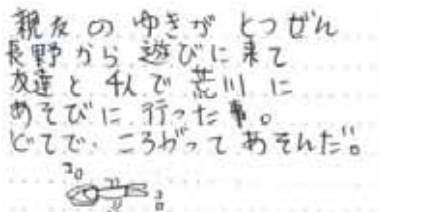 親友のゆきがとつぜん
長野から遊びに来て
友達と4人で荒川に
あそびに行った事。
どてで、ころがってあそんだ。